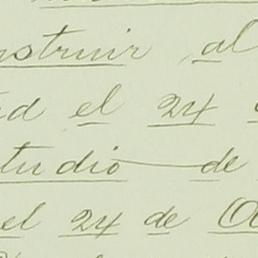 nstruir al
d el 24
tudio de
el 24 de